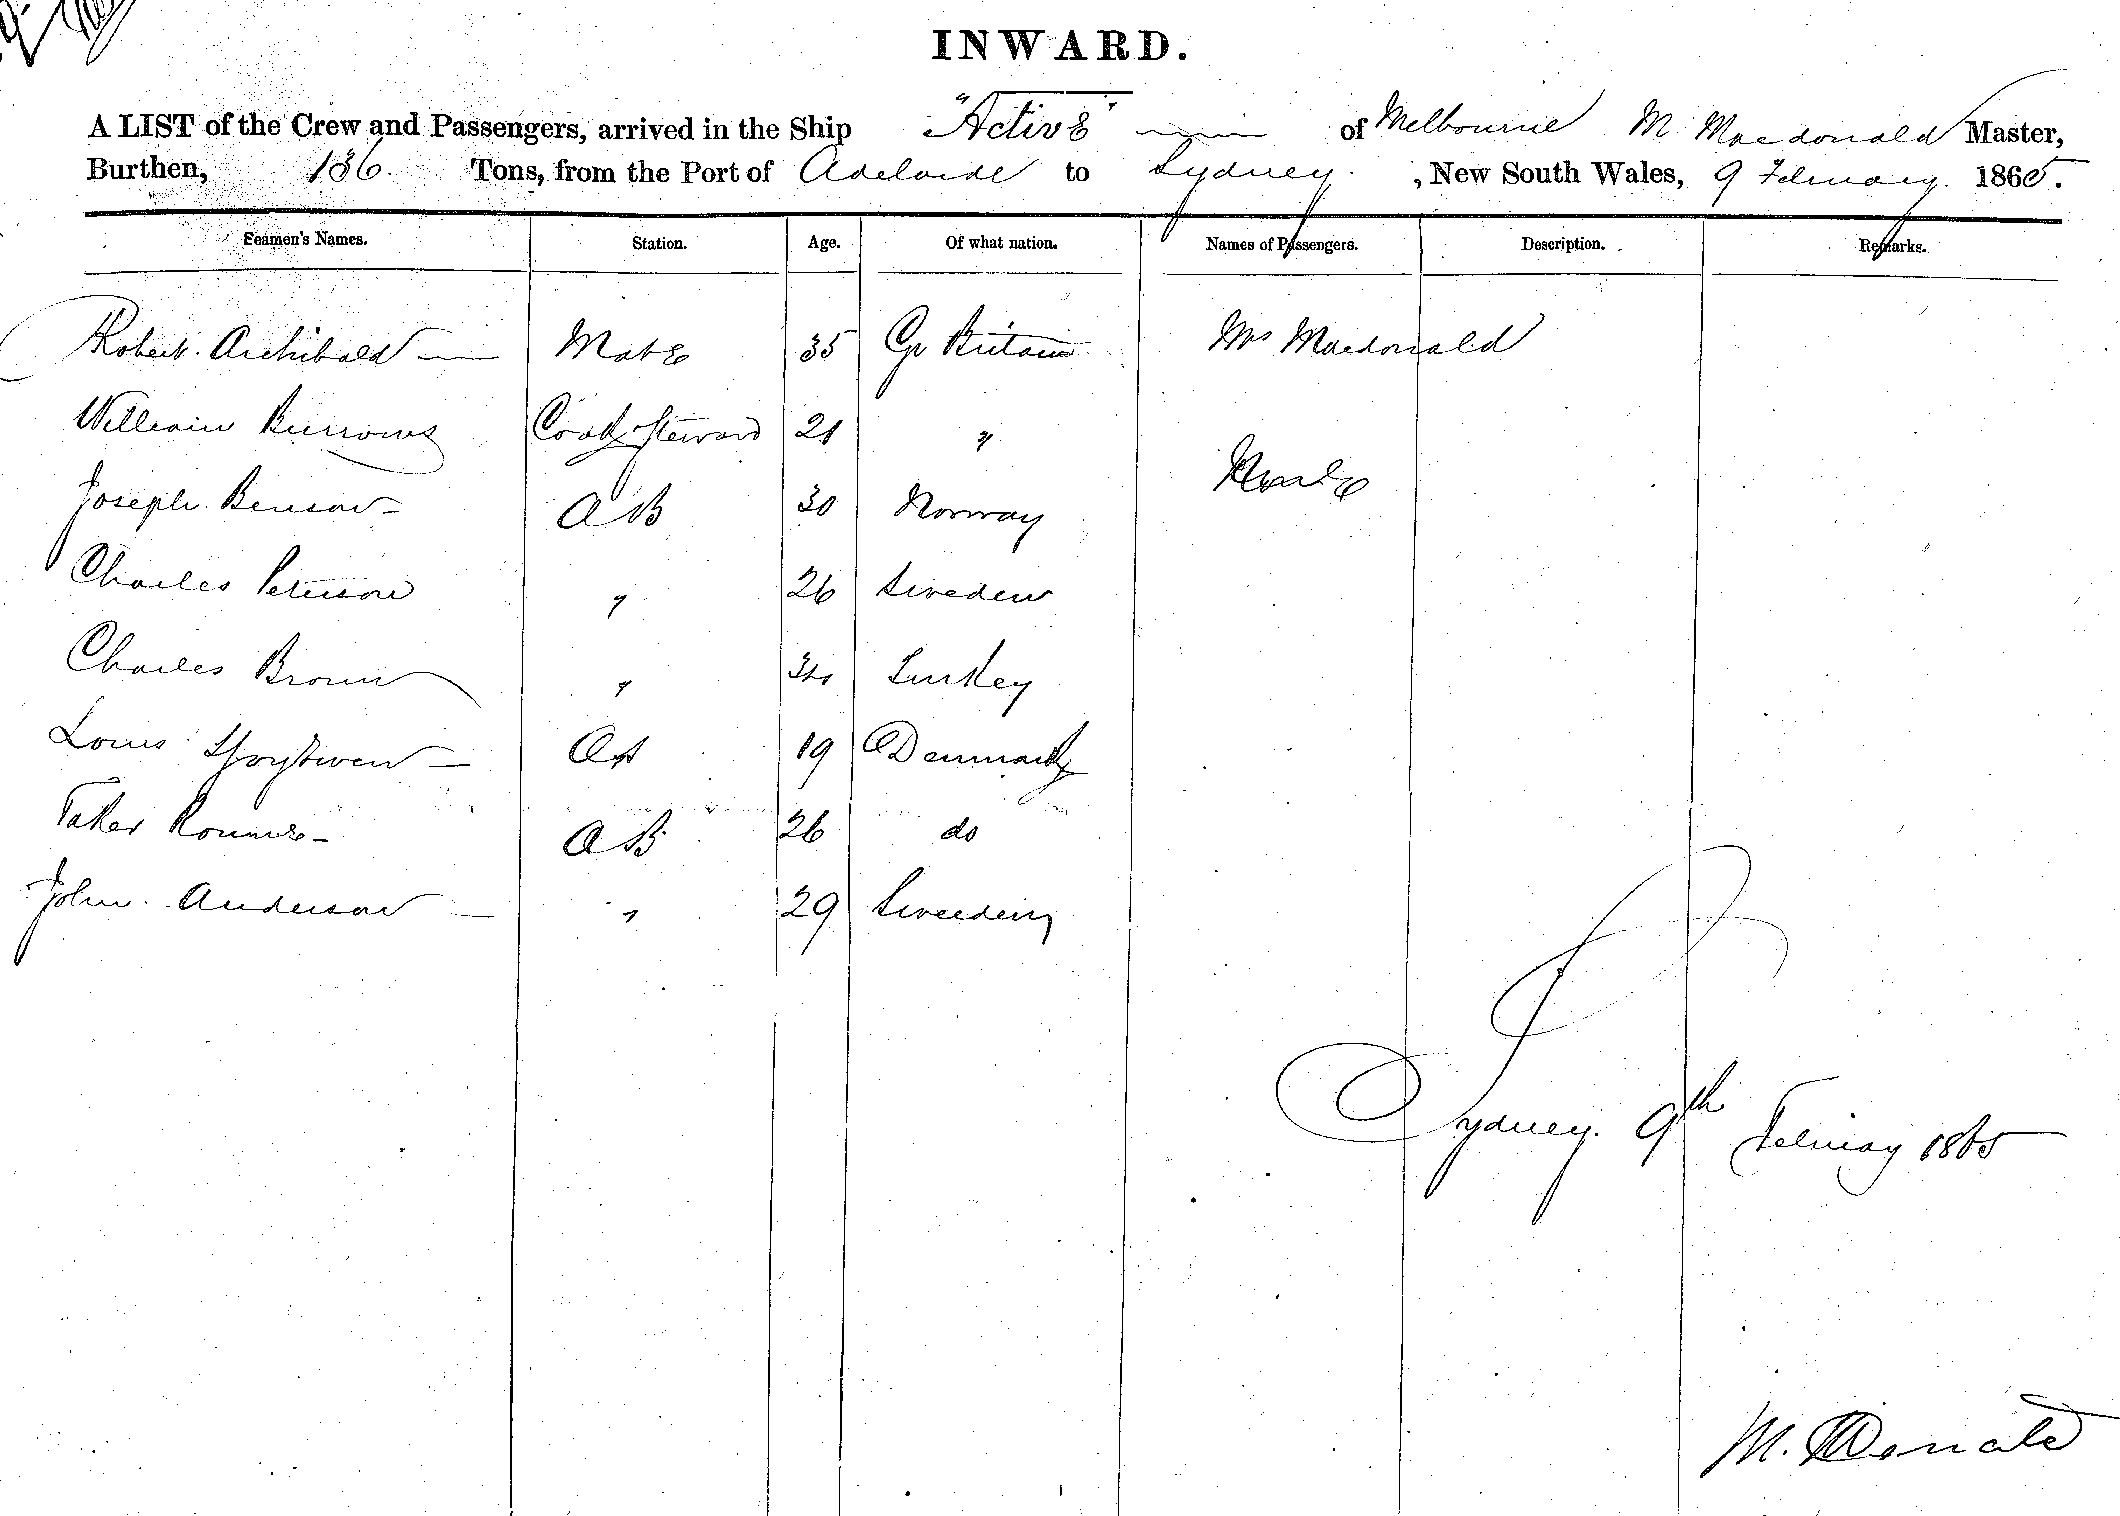 INWARD.
A LIST of the Crew and Passengers, arrived in the Ship "Active" of Melbourne M Macdonald Master,
Burthen, 136 Tons, from the Port of Adelaide to Sydney. , New South Wales, 9 February. 1865.
Seamen's Names. Station. Age. Of what nation. Names of Passengers. Description. Remarks.
Robert Archibald Mate 35 Gr Britain Mrs Macdonald
William Burrows Cook & Steward 21 "
Joseph Benson AB 30 Norway
Charles Peterson " 26 Sweden
Charles Brown " Turkey
Louis OS 19 Denmark
AB 26 do
John Anderson " 29 Sweeden
Sydney. 9th Februay 1865